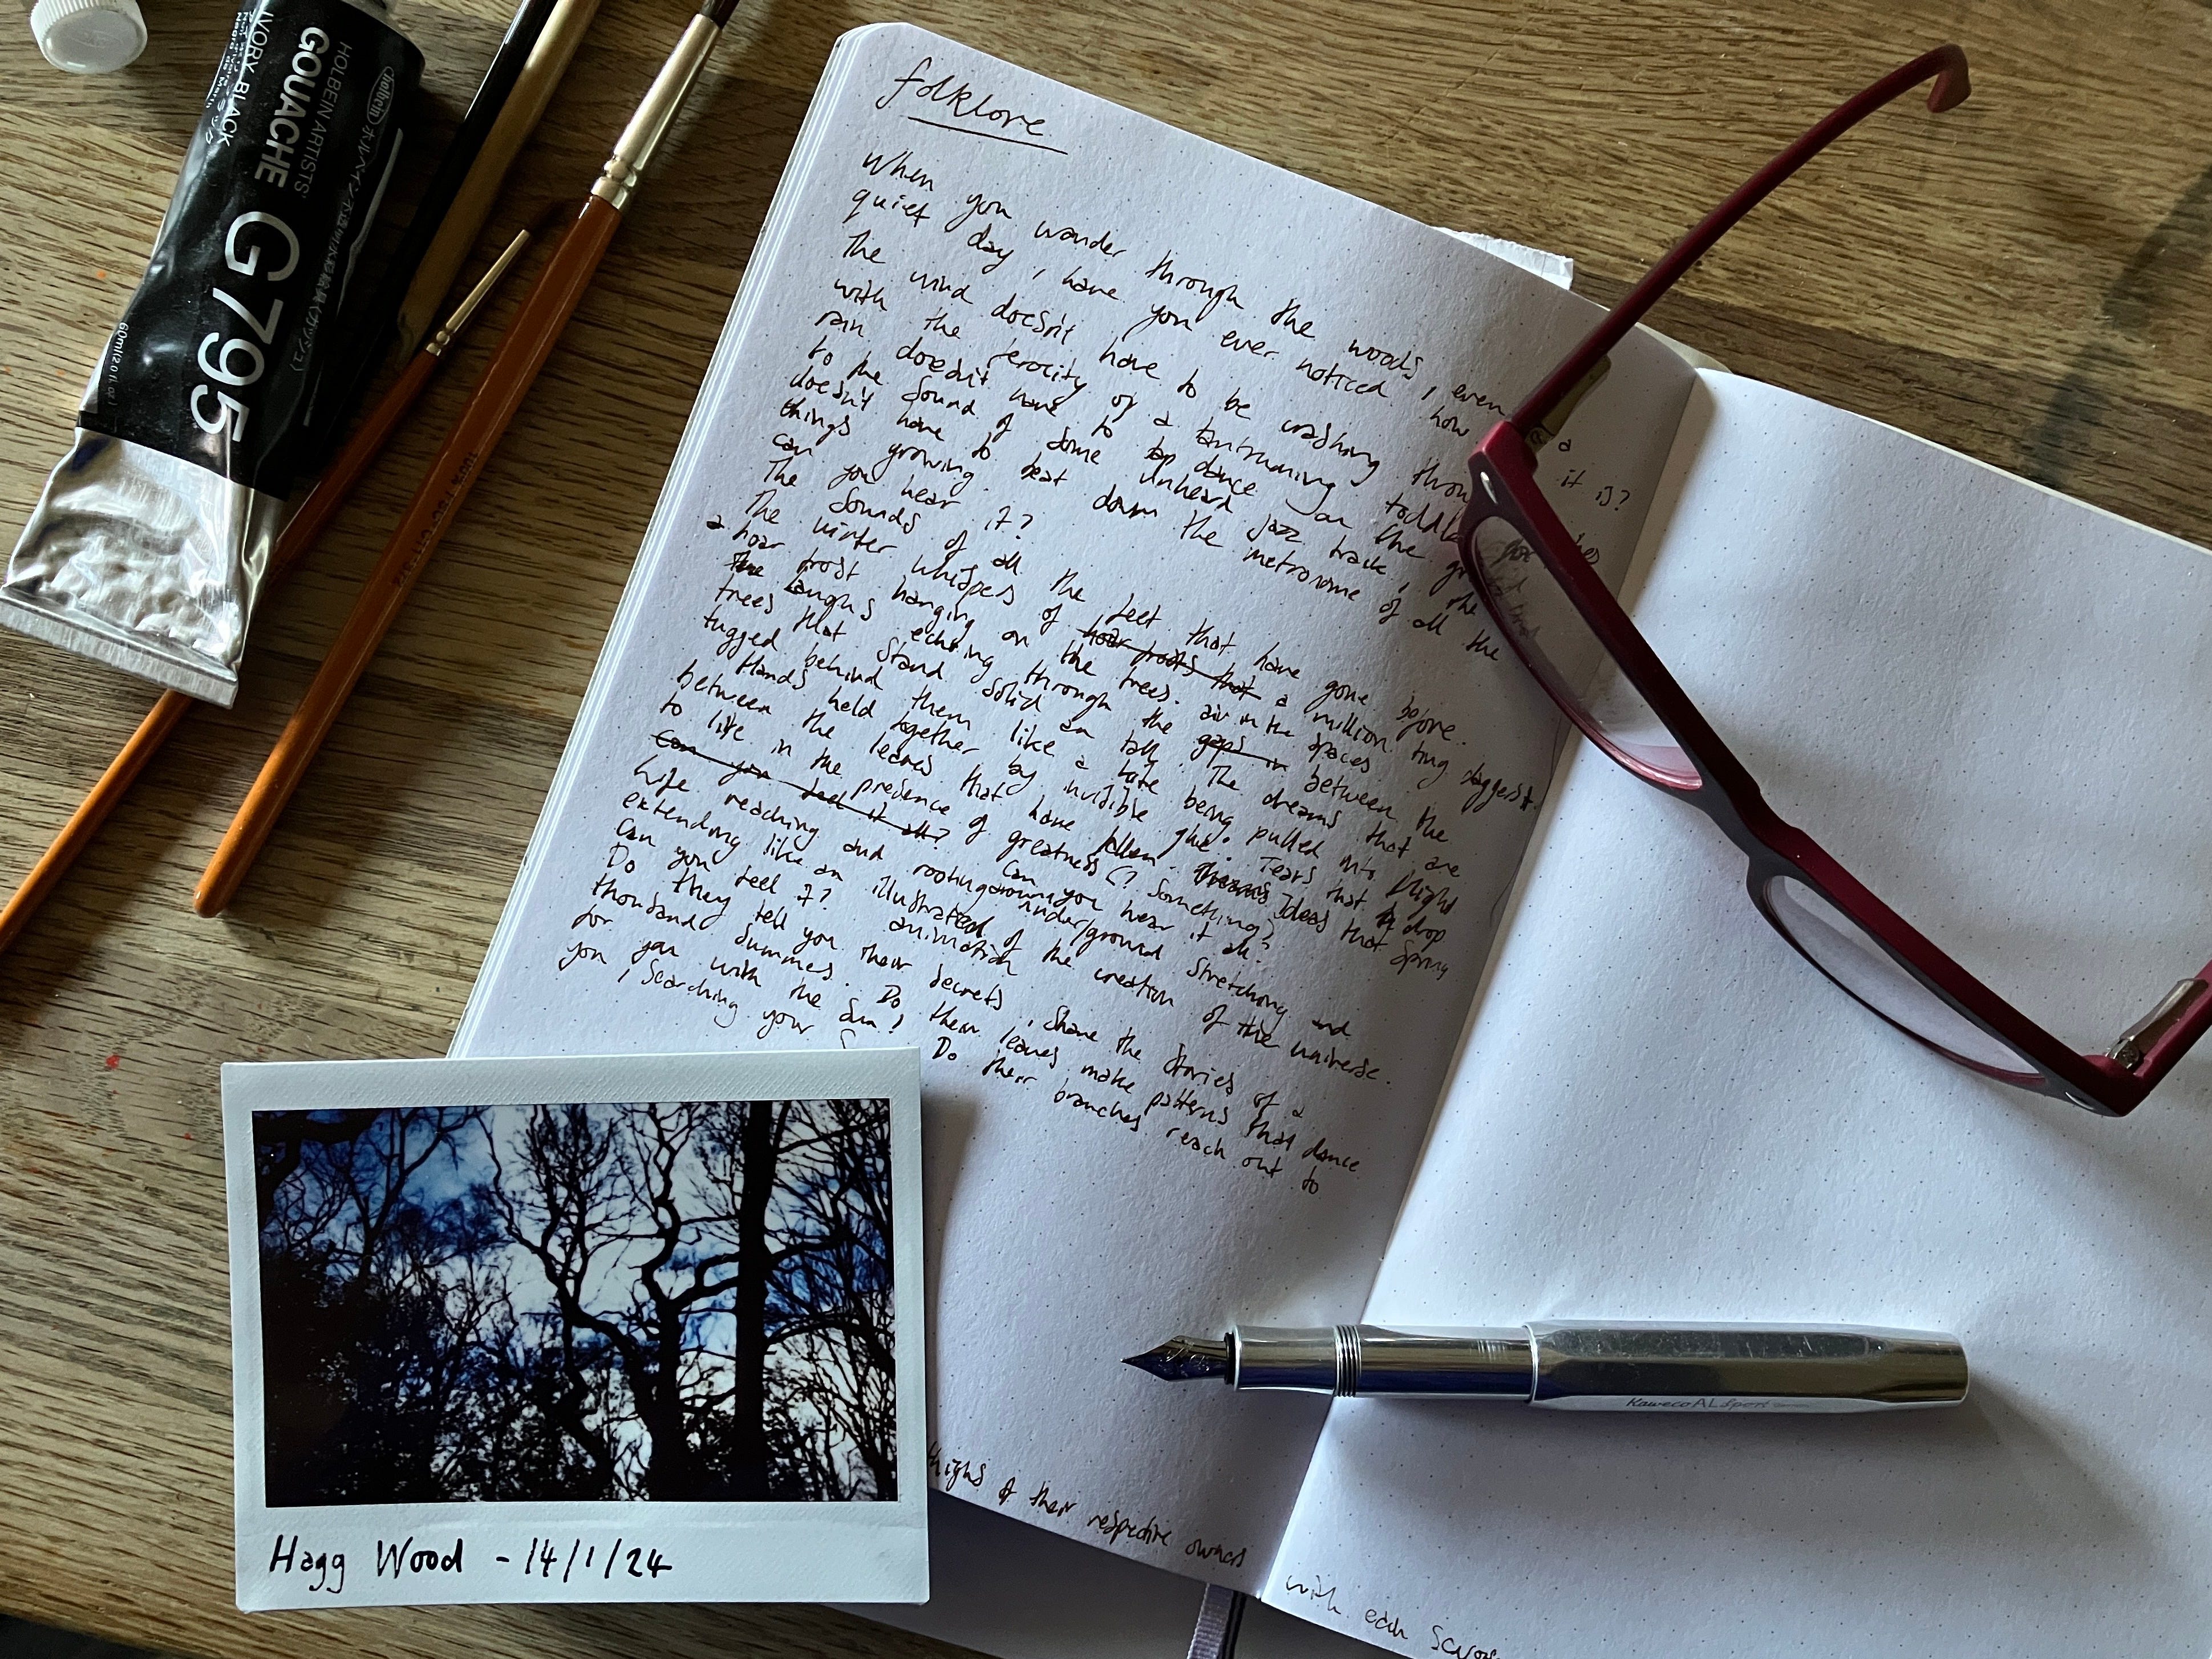 HOLBEIN ARTISTS'
GOUACHE
IVORY BLACK
G795
60ml(2.0 fl.oz.)
folklore
When you wander through the woods, even a
quiet day, have you ever noticed how it is?
The wind doesn't have to be crashing
with the ferocity of a tantruming
rain doesn't have to tap dance on the
to the sound of some unheard jazz track, the
doesn't have to beat down the metronome of all the
things growing.
can you hear it?
The sounds of all the feet that have gone before.
The winter whispers of hoar frosts that a million tiny daggers
a hoar frost hanging on the trees.
the laughs echoing through the air in the spaces gaps in between the
trees that stand solid an tall. The dreams that are
tugged behind them like a kite being pulled into flight
Hands held together by invisible glue. Tears that drop
between the leaves that have fallen. Ideas that spring
to life in the presence of greatness (? Something)
Can you feel it all? Can you hear it all?
Life reaching and rooting around under/ground stretching and
extending like an illustrated animation of the creation of the universe.
Can you feel it?
Do they tell you their secrets, share the stories of a
thousand summers. Do their leaves make patterns that dance
for you with the sun? Do their branches reach out to
you, searching your
thighs of their respective owners
with each
Kaweco AL Sport
Hagg Wood - 14/1/24